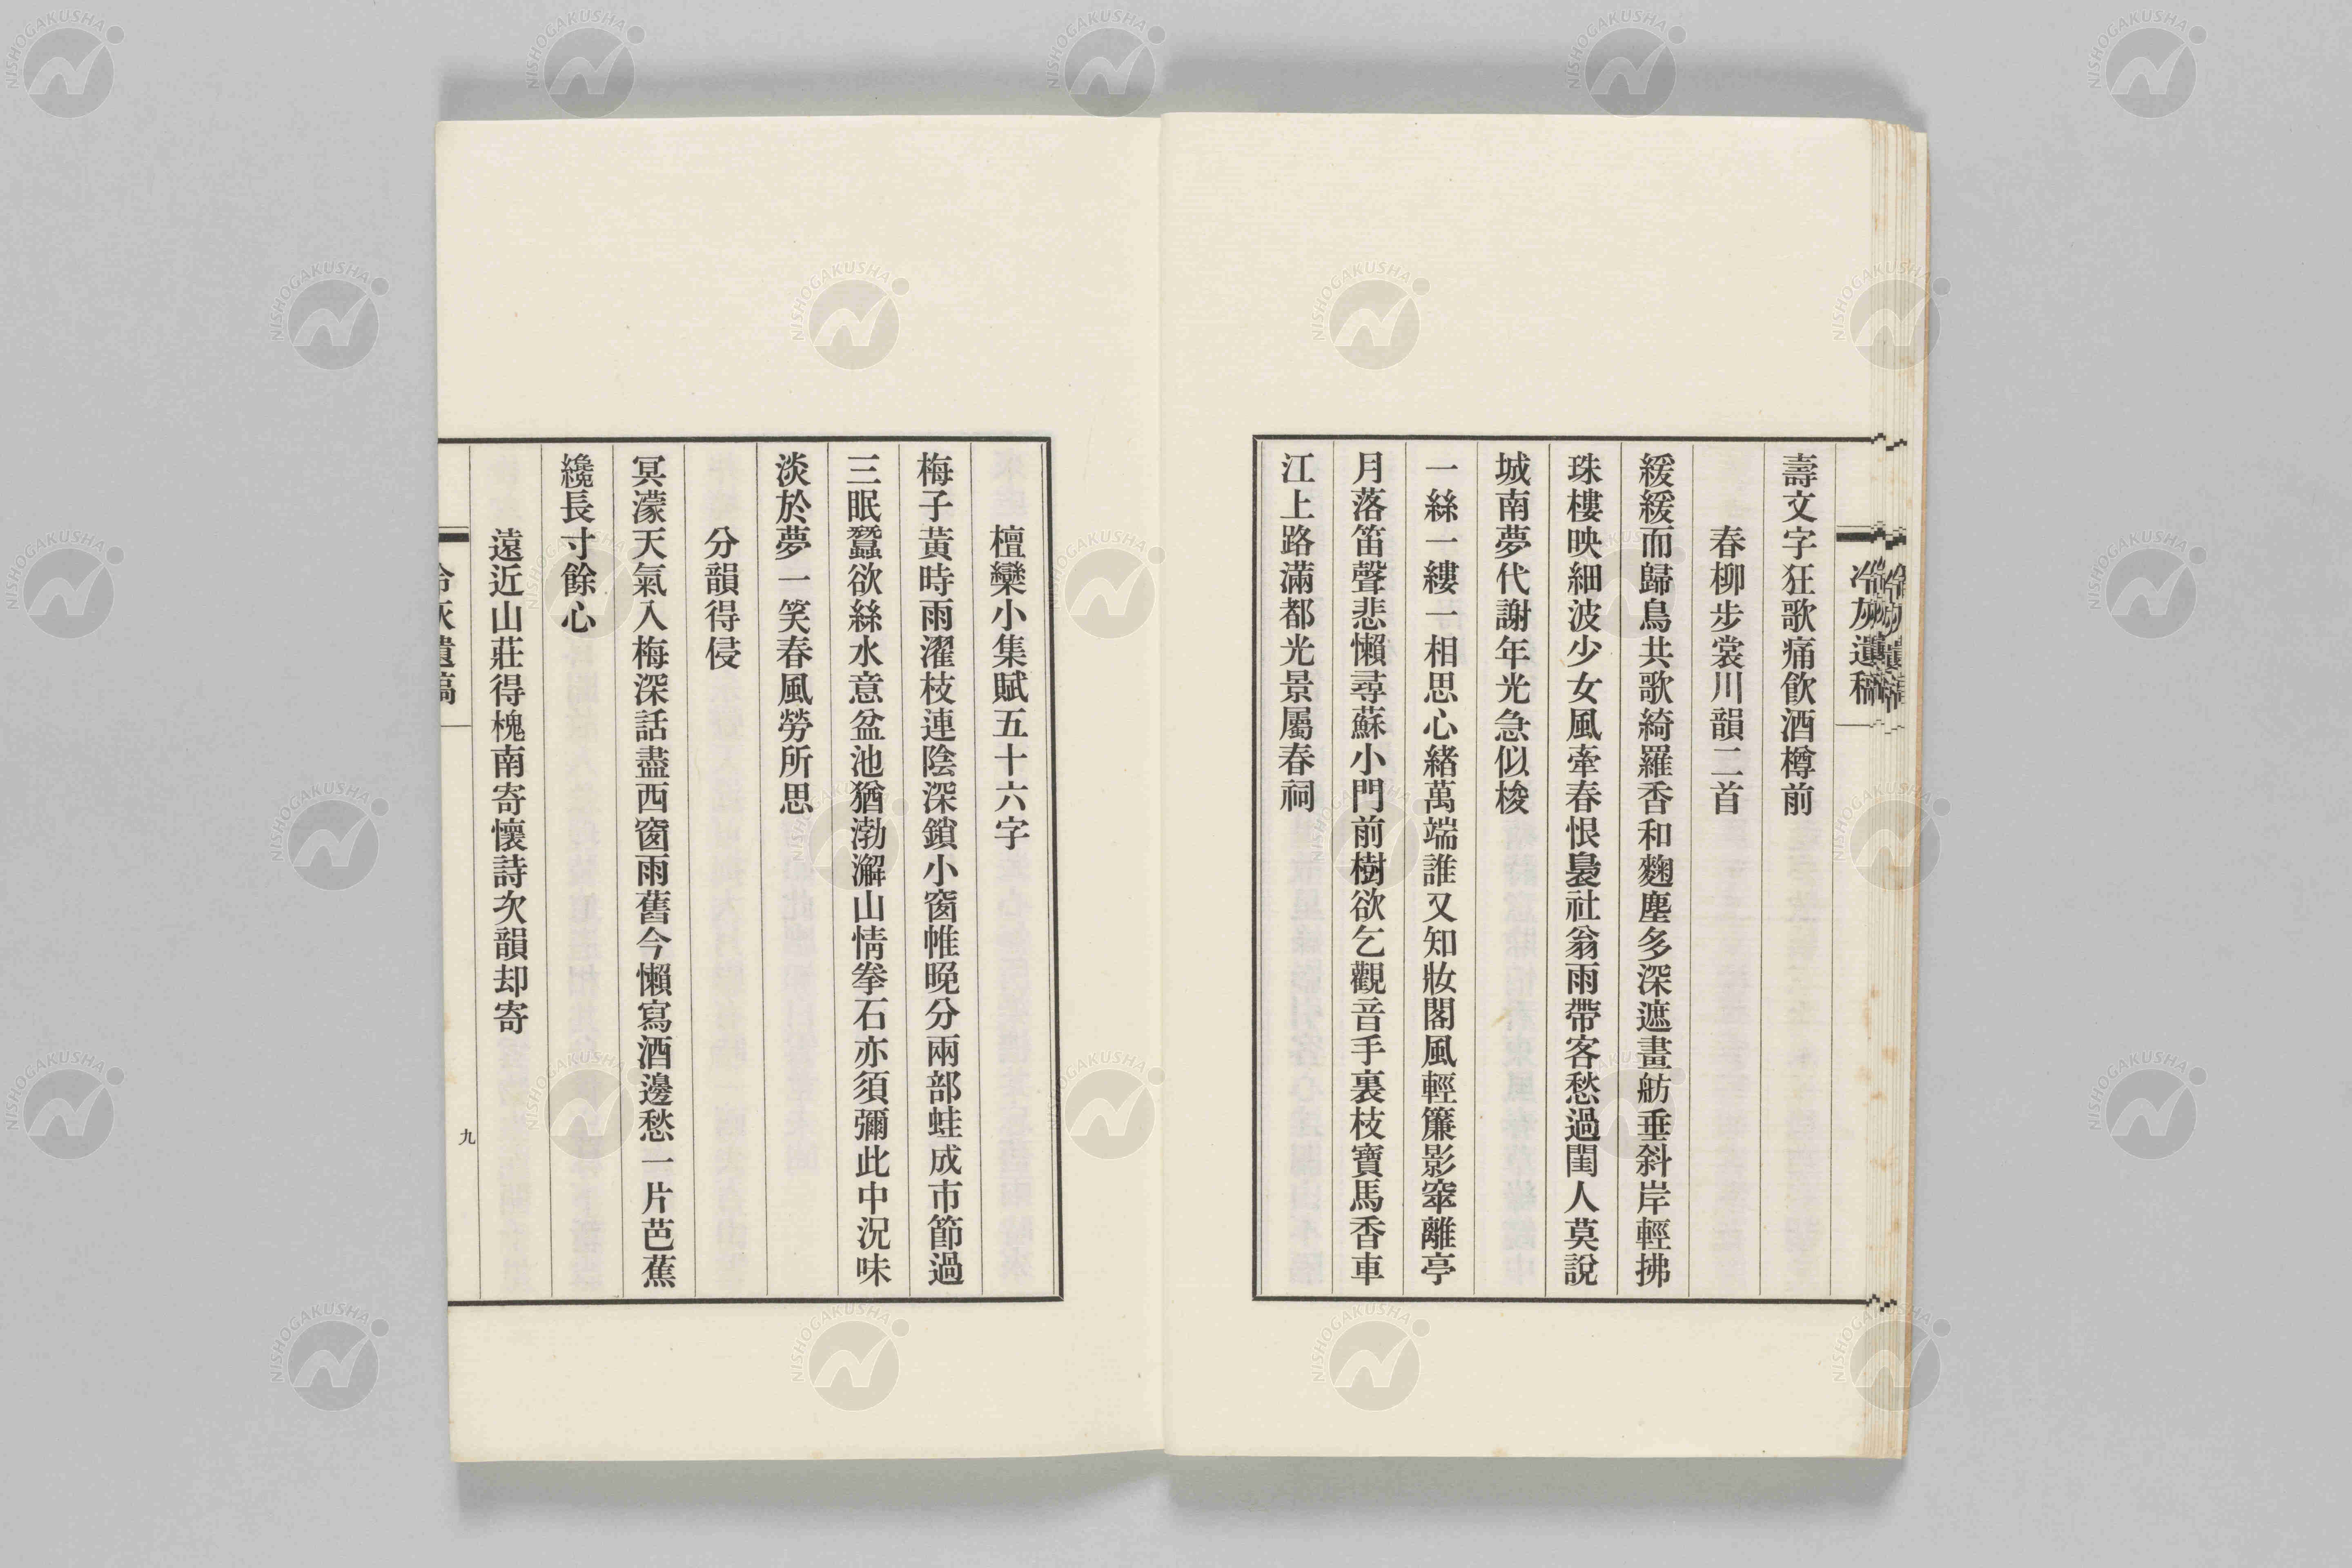 冷灰遺稿
壽文字狂歌痛飮酒樽前
春柳步裳川韻二首
緩緩而歸鳥共歌綺羅香和麴塵多深遮畫舫垂斜岸輕拂
珠樓映細波少女風牽春恨裊社翁雨帶客愁過閨人莫說
城南夢代謝年光急似梭
一絲一縷一相思心緖萬端誰又知妝閣風輕簾影窣離亭
月落笛聲悲懶尋蘇小門前樹欲乞觀音手裏枝寶馬香車
江上路滿都光景屬春祠
檀欒小集賦五十六字
梅子黃時雨濯枝連陰深鎖小窗帷晚分兩部蛙成市節過
三眠蠶欲絲水意盆池猶渤澥山情拳石亦須彌此中況味
淡於夢一笑春風勞所思
分韻得侵
冥濛天氣入梅深話盡西窗雨舊今懶寫酒邊愁一片芭蕉
纔長寸餘心
遠近山莊得槐南寄懷詩次韻却寄
冷灰遺稿
九
NISHOGAKUSHA